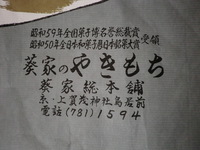 昭和59年全国菓子博名誉総裁賞受領
昭和50年全日本和菓子周日本銘菓大賞
葵家のやきもち
葵家総本舗
京・上賀茂神社鳥居前
電話(781)1594